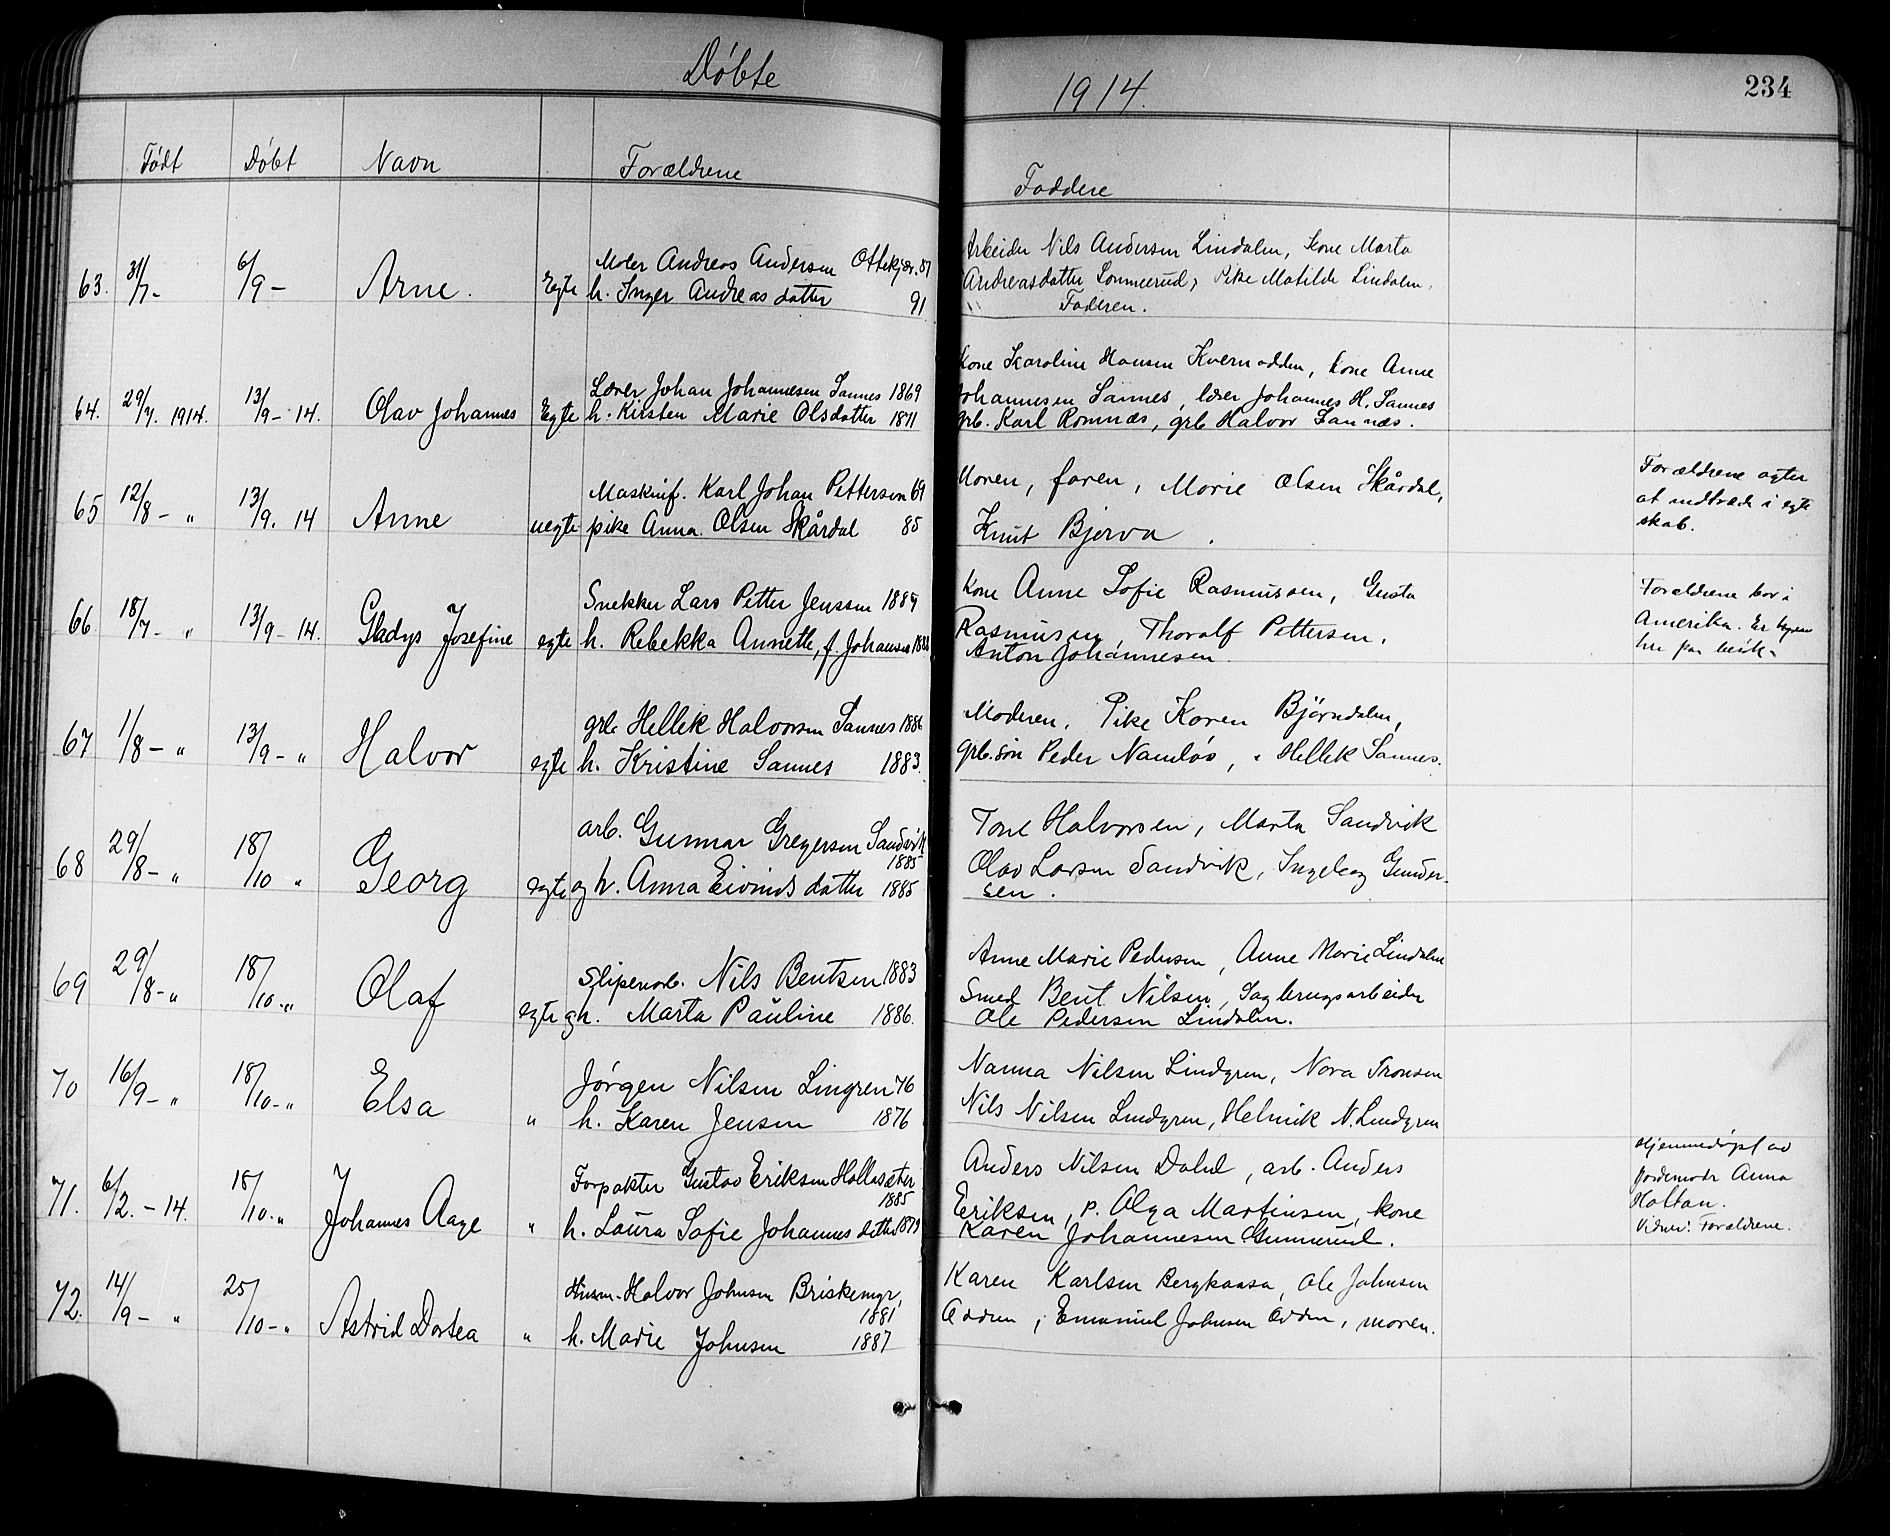 Døbte
1914.
234
Født Døbt Navn Forældrene Faddere
63. 31/7- 6/9- Arne. Egte
Maler Andreas Andersen Ottekjær. 87
h. Inger Andreasdatter 91
Arbeider Nils Andersen Lindalen, Kone Marta
Andreasdatter Lonnerud, Pike Matilde Lindalen,
Faderen.
64. 29/7. 1914. 13/9- 14. Olav Johannes Egte
Lærer Johan Johannesen Sannes 1869
h. Kirsten Marie Olsdatter 1871
Kone Karoline Hansen Kvernodden, kone Anne
Johannesen Sannes, lærer Johannes H. Sannes
grb. Karl Romnæs, grb Halvor Sannæs.
65 12/8- " 13/9. 14 Anne uegte
Maskinf. Karl Johan Pettersen 69
pike Anna Olsen Skårdal 85
Moren, faren, Marie Olsen Skårdal,
Knut Bjerva.
Forældrene agter
at indtræde i egte
skab.
66 18/7- " 13/9- 14. Gladys Josefine egte
Snekker Lars Petter Jenssen 1889
h. Rebekka Annette, f. Johansen 1888
Kone Anne Sofie Rasmussen, Gusta
Rasmusen, Thoralf Pettersen.
Anton Johannesen.
Forældrene bor i
Amerika. Er
her paa besøk.
67 1/8- " 13/9- " Halvor egte
grb Hellek Halvorsen Sannes 1886
h. Kristine Sannes 1883.
Moderen, Pike Karen Bjørndalen,
grb. søn Peder Namløs, " Hellek Sannes.
68 29/8- " 18/10 " Georg egte
arb. Gunnar Gregersen Sandvik
1885
og h. Anna Eivindsdatter 1885
Tone Halvorsen, Marta Sandvik
Olav Larsen Sandvik, Ingeborg Gunder-
sen.
69 29/8- " 18/10- " Olaf egte
Sliperiarb. Nils Bentsen 1883
og h. Marta Pauline 1886.
Anne Marie Pedersen, Anne Marie Lindalen
Smed Bent Nilsen, Sagbrugsarbeider
Ole Pedersen Lindalen.
70 16/9- " 18/10- " Elsa "
Jørgen Nilsen Lingren 76
h. Karen Jensen 1876
Nanna Nilsen Lindgren, Nora Tronsen
Nils Nilsen Lindgren, Helmik N. Lindgren
71. 6/2. - 14. 18/10- " Johannes Aage "
Forpakter Gustav Eriksen Hollasæter
1885
h. Laura Sofie Johannesdatter 1879
Anders Nilsen Dahl, arb. Anders
Eriksen, p. Olga Martinsen, kone
Karen Johannesen Gunnerud.
Hjemmedøpt av
jordemoder Anna
Holtan.
Vidner: Forældrene.
72. 14/9- " 25/10- " Astrid Dortea "
Husm. Halvor Johnsen Briskemyr,
1881
h. Marie Johnsen 1887
Karen Karlsen Bergkaasa, Ole Johnsen
Odden, Emanuel Johnsen Odden, moren.